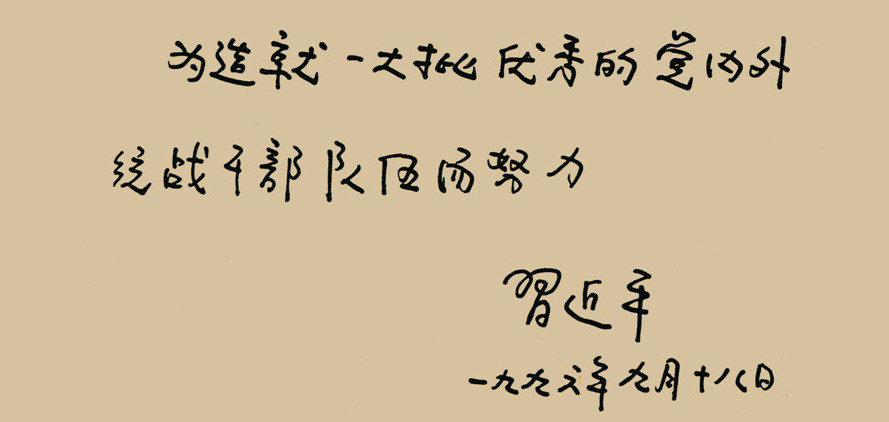 为造就一大批优秀的党内外
统战干部队伍而努力
習近平
一九九六年九月十八日